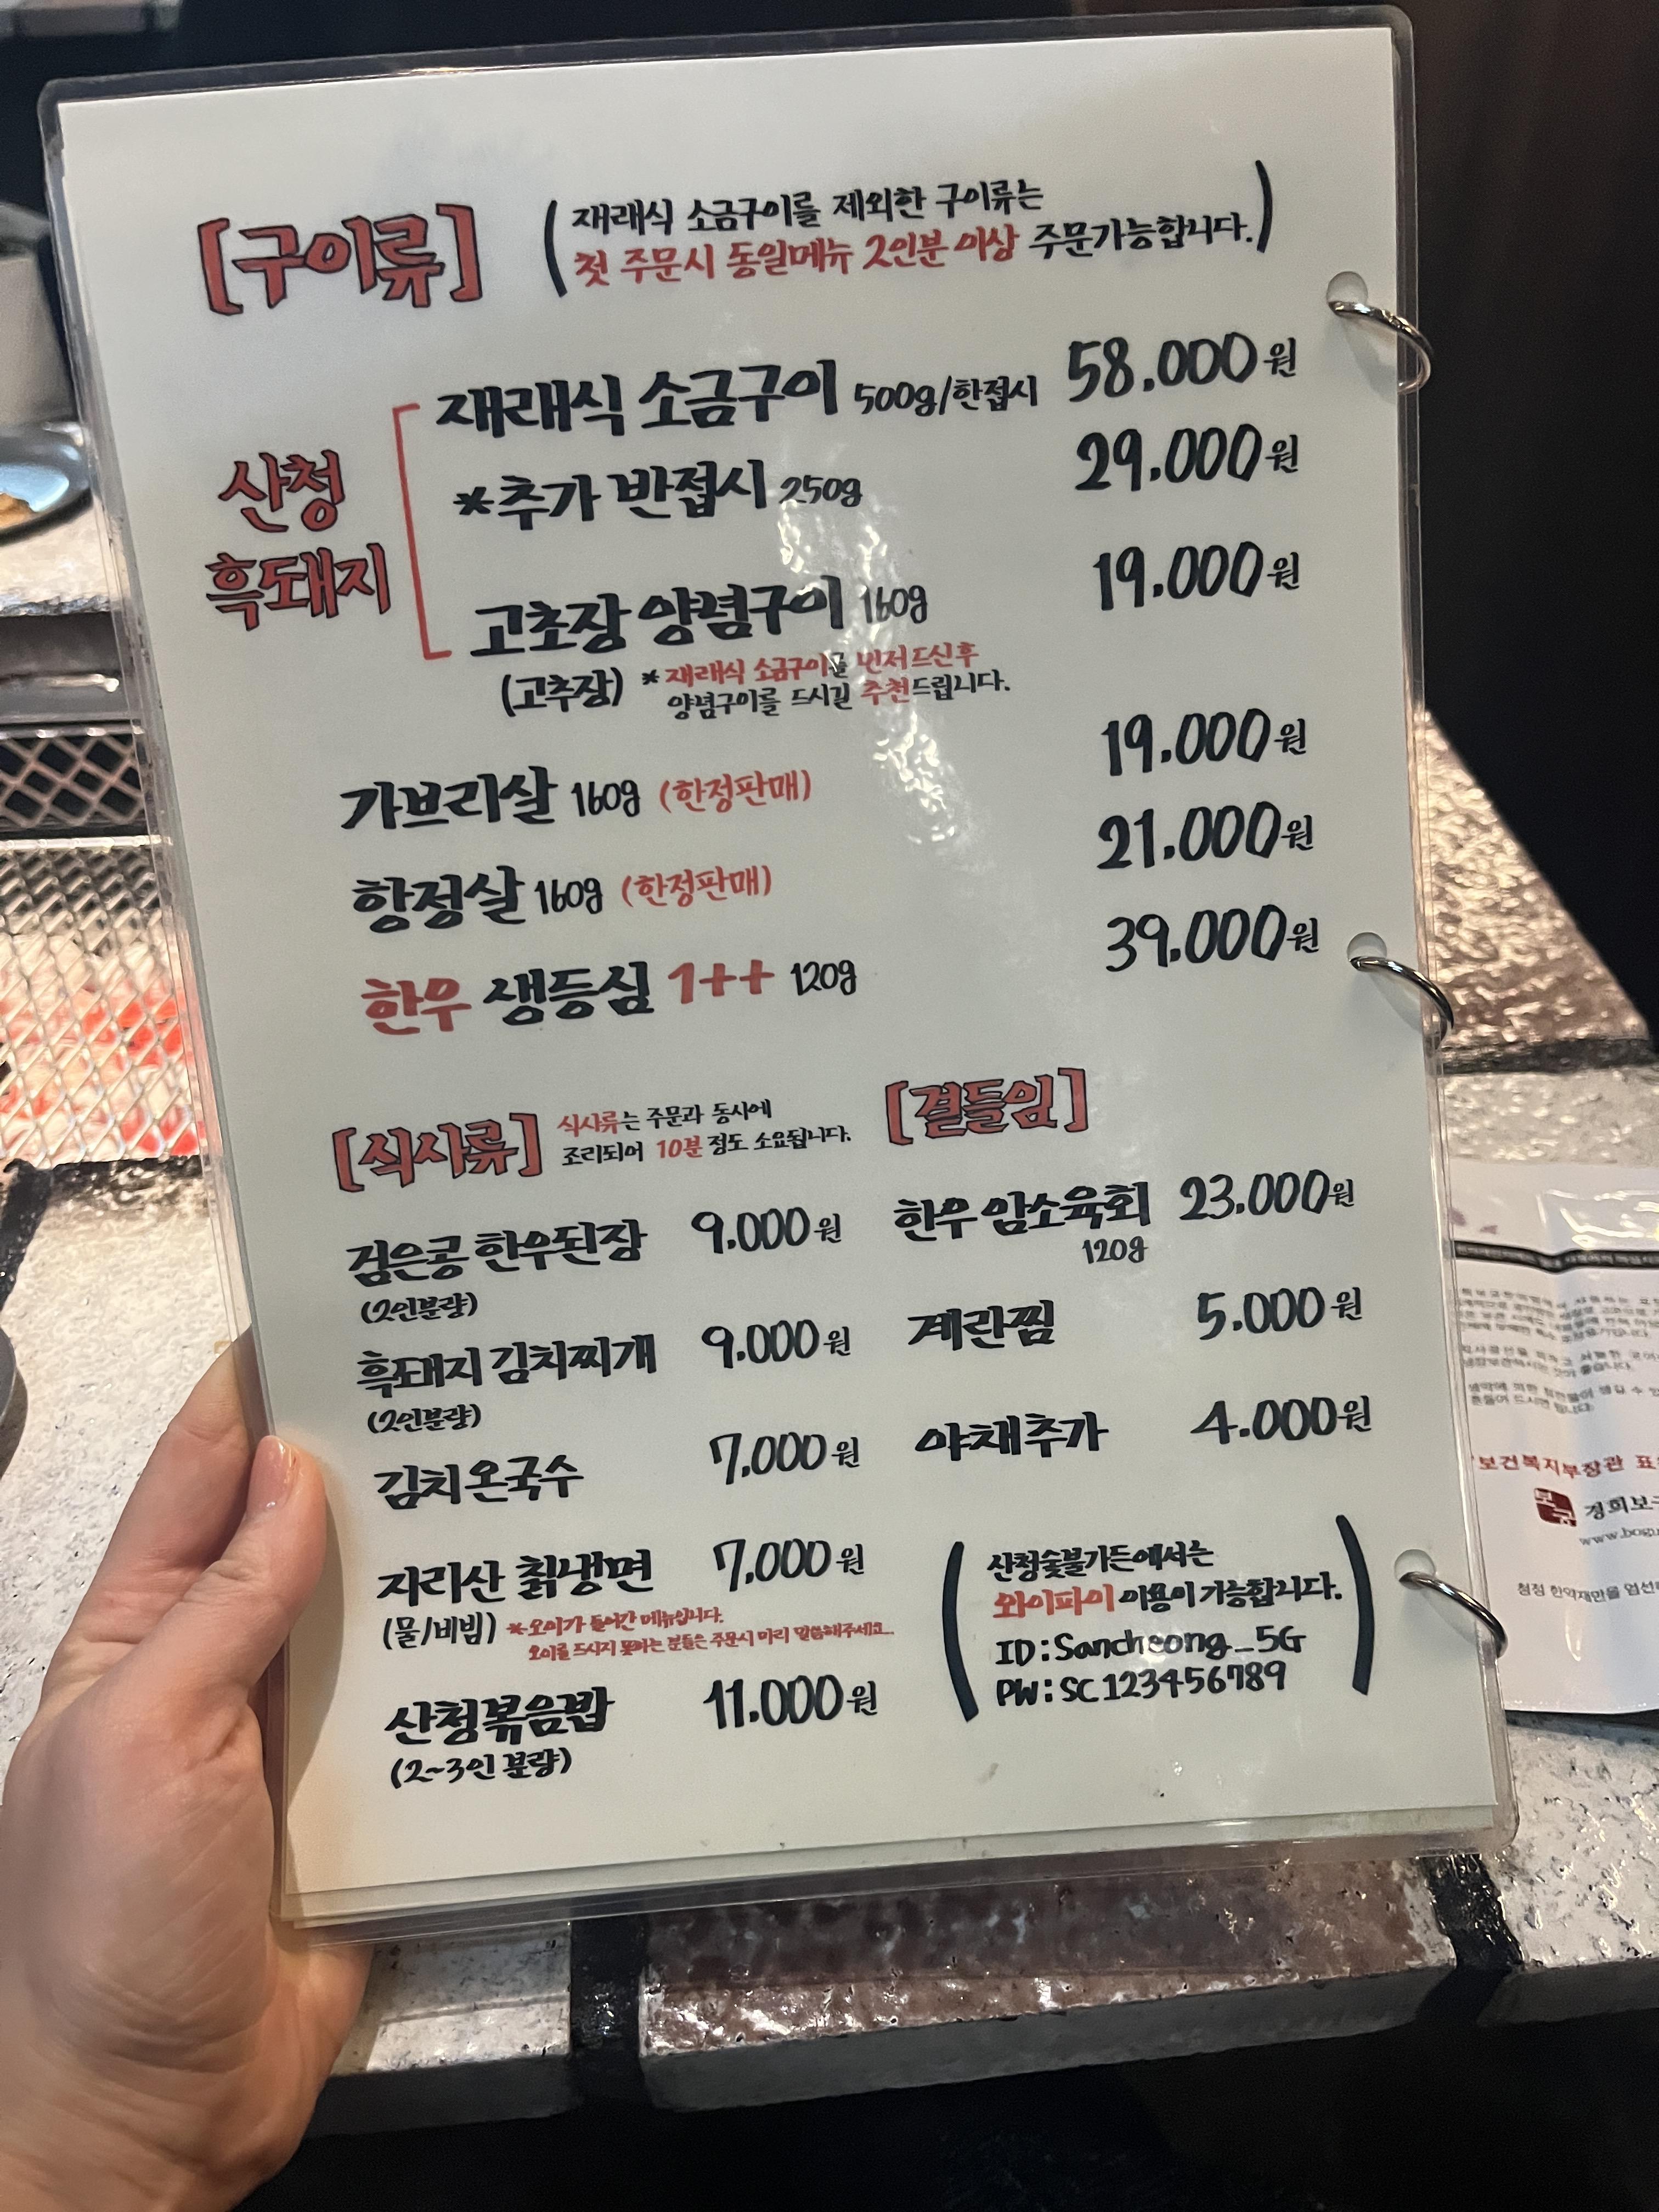 [구이류]
(재래식 소금구이를 제외한 구이류는
첫 주문시 동일메뉴 2인분 이상 주문가능합니다.)
산청
흑돼지
재래식 소금구이 500g/한접시 58.000원
*추가 반접시 250g 29.000원
고초장 양념구이 160g 19.000원
(고추장) *재래식 소금구이를 먼저 드신후
양념구이를 드시길 추천드립니다.
가브리살 160g (한정판매) 19.000원
항정살 160g (한정판매) 21.000원
한우 생등심 1++ 120g 39.000원
[식사류] 식사류는 주문과 동시에
조리되어 10분 정도 소요됩니다.
검은콩 한우된장 9.000원
(2인분량)
흑돼지 김치찌개 9.000원
(2인분량)
김치온국수 7.000원
지리산 칡냉면 7.000원
(물/비빔) *오이가 들어간 메뉴입니다.
오이를 드시지 못하는 분들은 주문시 미리 말씀해주세요.
산청볶음밥 11.000원
(2~3인 분량)
[곁들임]
한우 암소육회 23.000원
120g
계란찜 5.000원
야채추가 4.000원
(산청숯불가든에서는
와이파이 이용이 가능합니다.
ID:Sancheong_5G
PW:SC123456789)
보건복지부장관
경희보
www.bog
청정 한약재만을 엄선